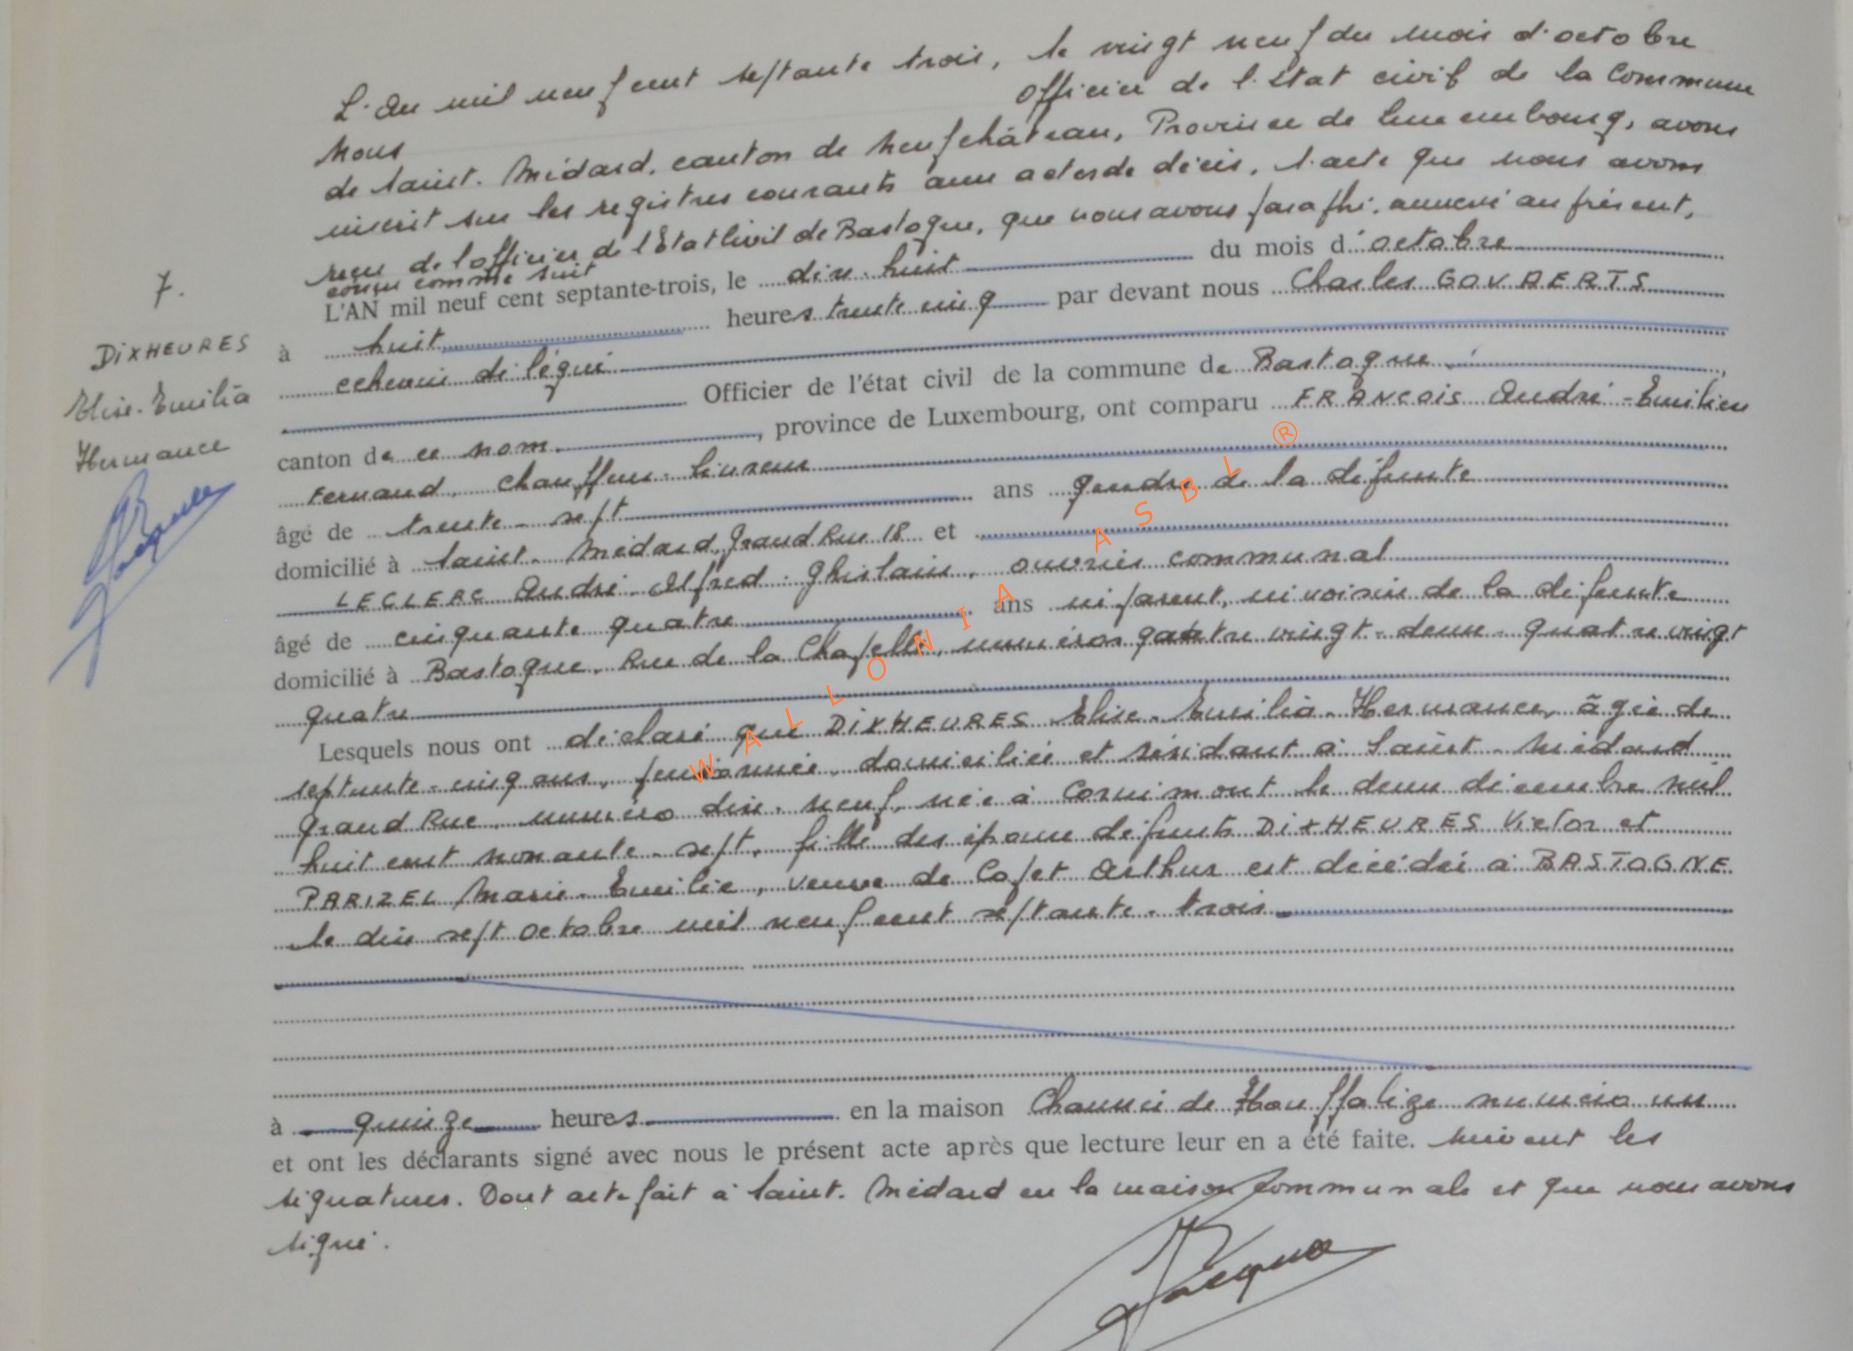 L'an mil neuf cent septante trois, le vingt neuf du mois d'octobre
Nous officier de l'état civil de la Commune
de Saint-Médard, canton de Neufchâteau, Province de Luxembourg, avons
inscrit sur les registres courants aux actes de décès, l'acte que nous avons
reçu de l'officier de l'Etat Civil de Bastogne, que nous avons paraphé, annexé au présent,
conçu comme suit
7.
DIXHEURES
Elise-Emilia
Hermance
Jacques
L'AN mil neuf cent septante-trois, le dix-huit du mois d'octobre
à huit heures trente cinq par devant nous Charles GOVAERTS
echevin délégué
Officier de l'état civil de la commune de Bastogne
canton de ce nom, province de Luxembourg, ont comparu FRANCOIS André-Emilien
Fernand, chauffeur-livreur
âgé de trente-sept ans gendre de la défunte
domicilié à Saint-Médard, Grand Rue 18 et
LECLERC André-Alfred-Ghislain, ouvrier communal
âgé de cinquante quatre ans ni parent, ni voisin de la défunte
domicilié à Bastogne, Rue de la Chapelle, numéros quatre vingt-deux-quatre vingt
quatre
Lesquels nous ont déclaré que DIXHEURES Elise-Emilia-Hermance, âgée de
septante-cinq ans, pensionnée, domiciliée et résidant à Saint-Médard
Grand Rue, numéro dix-neuf, née à Cornimont le deux décembre mil
huit cent nonante-sept, fille des époux défunts DIXHEURES Victor et
PARIZEL Marie-Emilie, veuve de Copet Arthur est décédée à BASTOGNE
le dix sept octobre mil neuf cent septante-trois
à quinze heures en la maison Chaussée de Houffalize numéro un
et ont les déclarants signé avec nous le présent acte après que lecture leur en a été faite. suivent les
signatures. Dont acte fait à Saint-Médard en la maison Communale et que nous avons
signé.
Jacques
WALLONIA ASBL ®